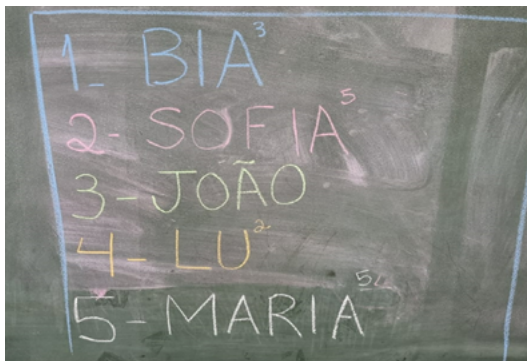 1- BIA 3
2- SOFIA 5
3- JOÃO
4- LU 2
5- MARIA 5